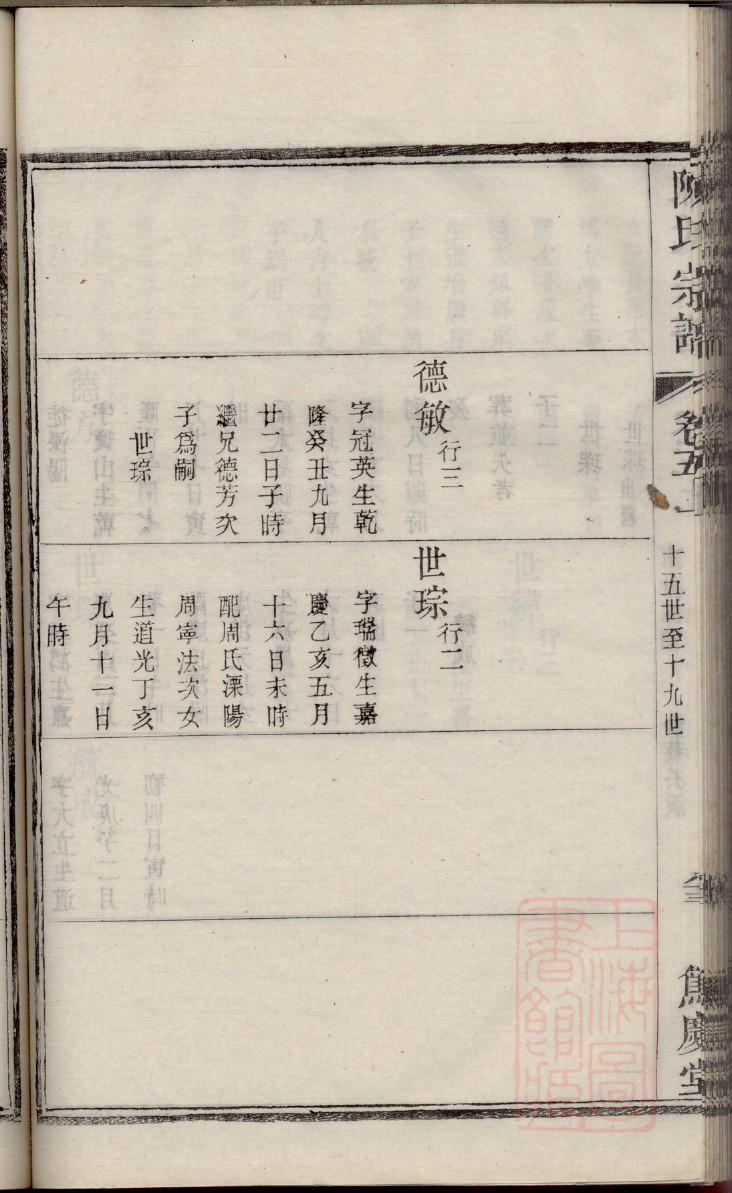 陳氏宗譜
卷五上
十五世至十九世
慶堂
德敏 行三
字冠英生乾
隆癸丑九月
廿二日子時
繼兄德芳次
子爲嗣
世琮
世琮 行二
字瑞徵生嘉
慶乙亥五月
十六日未時
配周氏溧陽
周寧法次女
生道光丁亥
九月十一日
午時
上海圖
書館藏